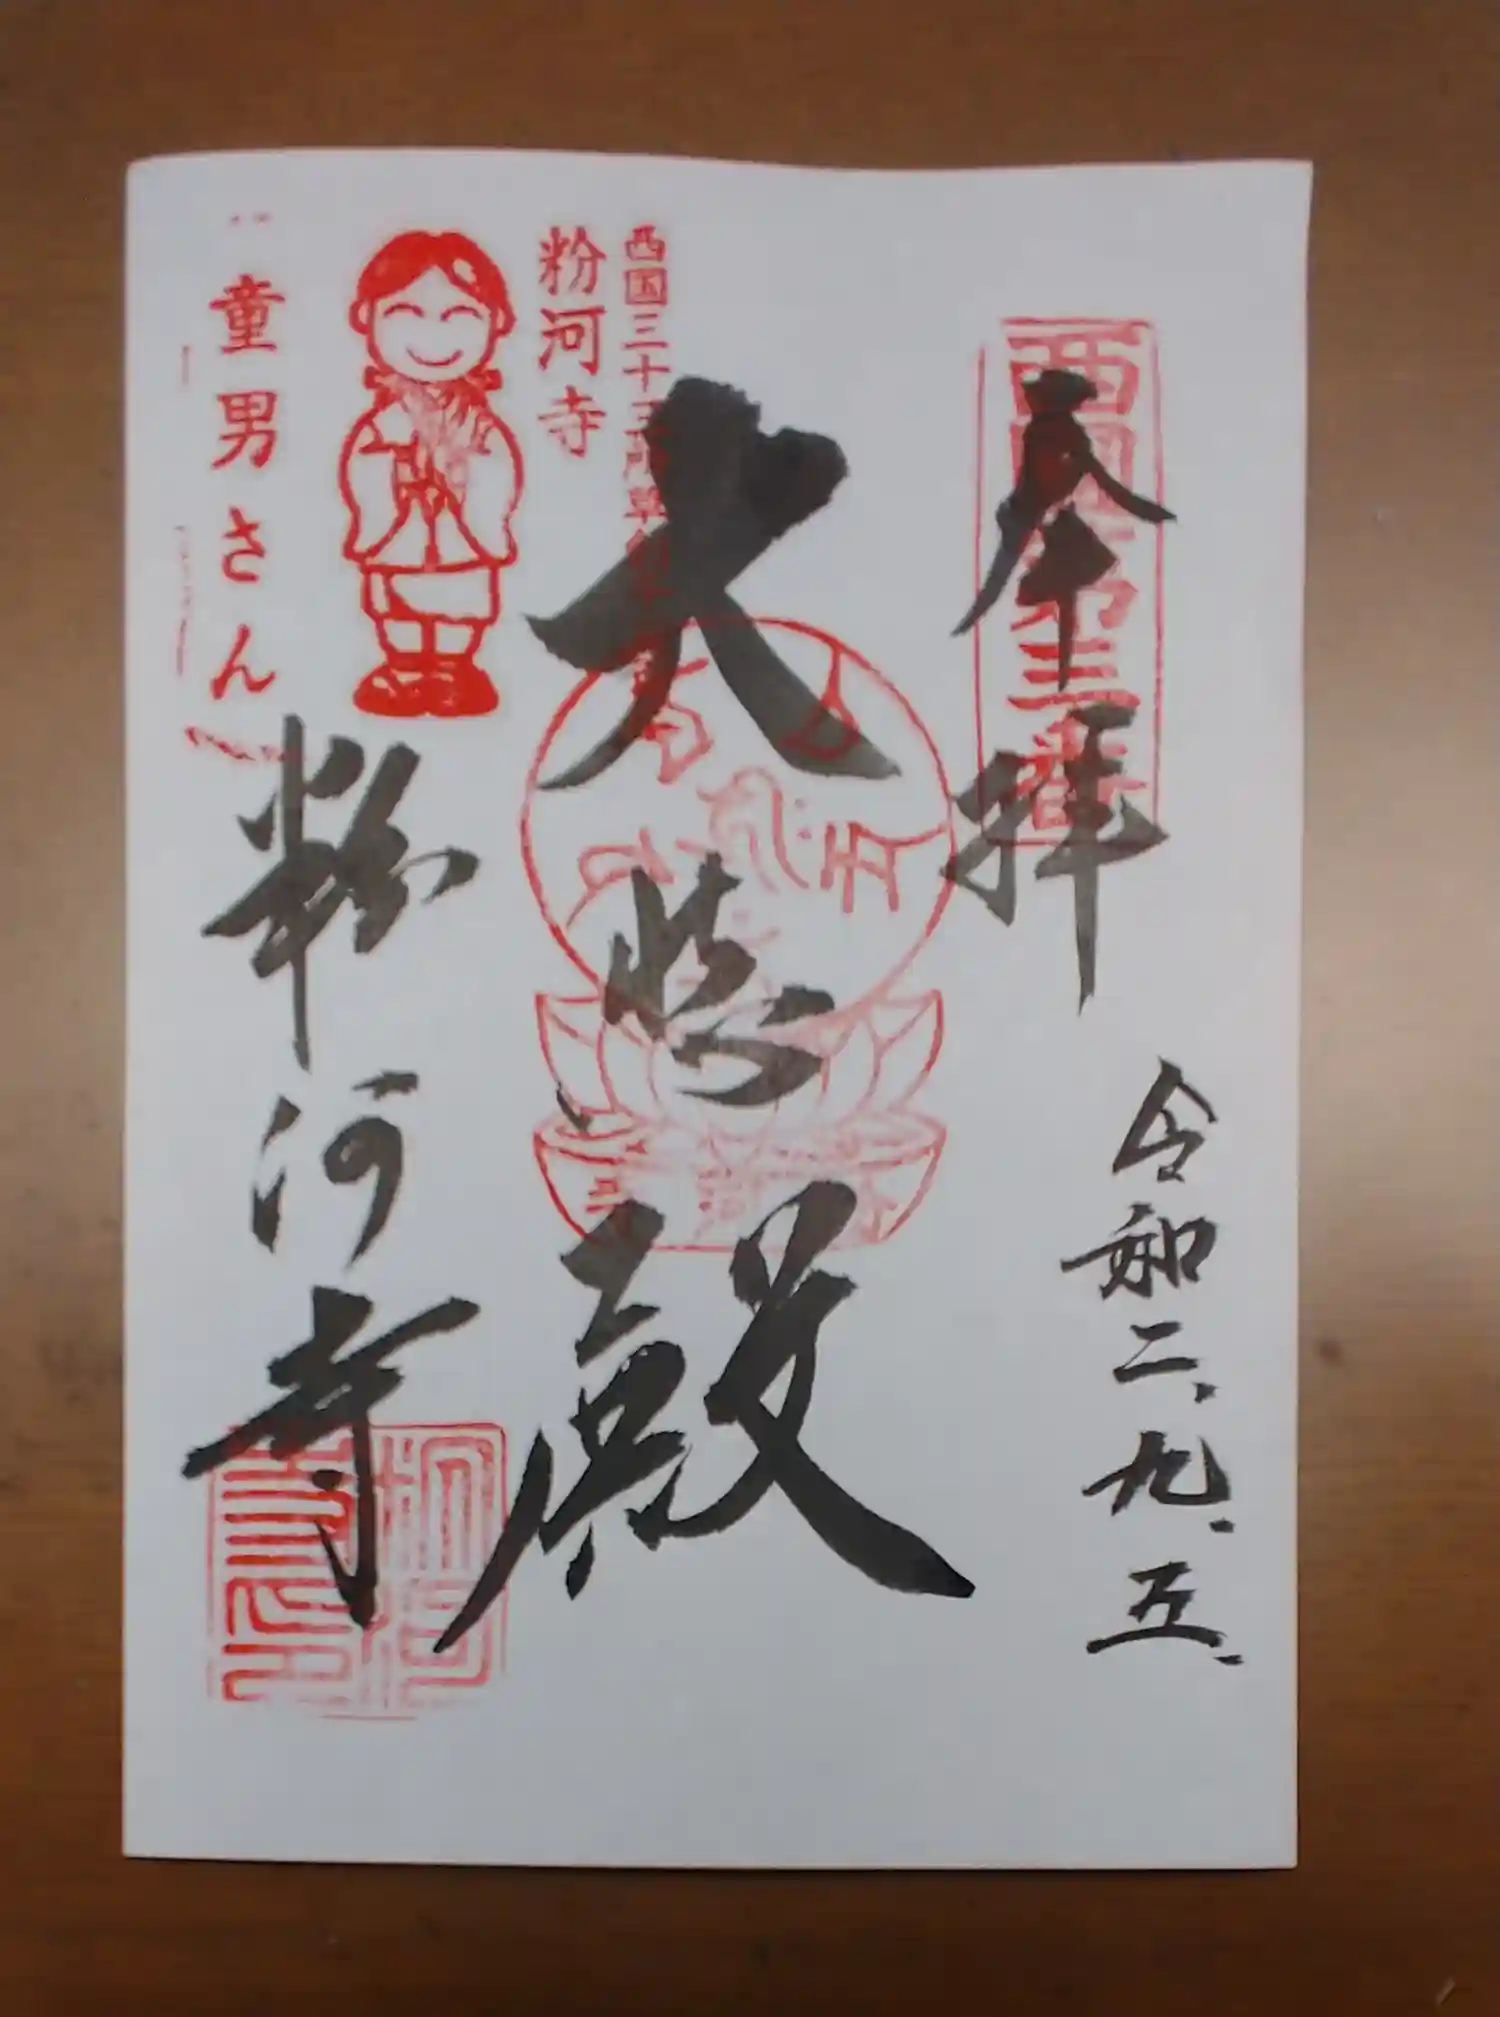 奉拝
西国第三番
令和二、九、五、
大悲殿
西国三十三所草創
粉河寺
童男さん
粉河寺